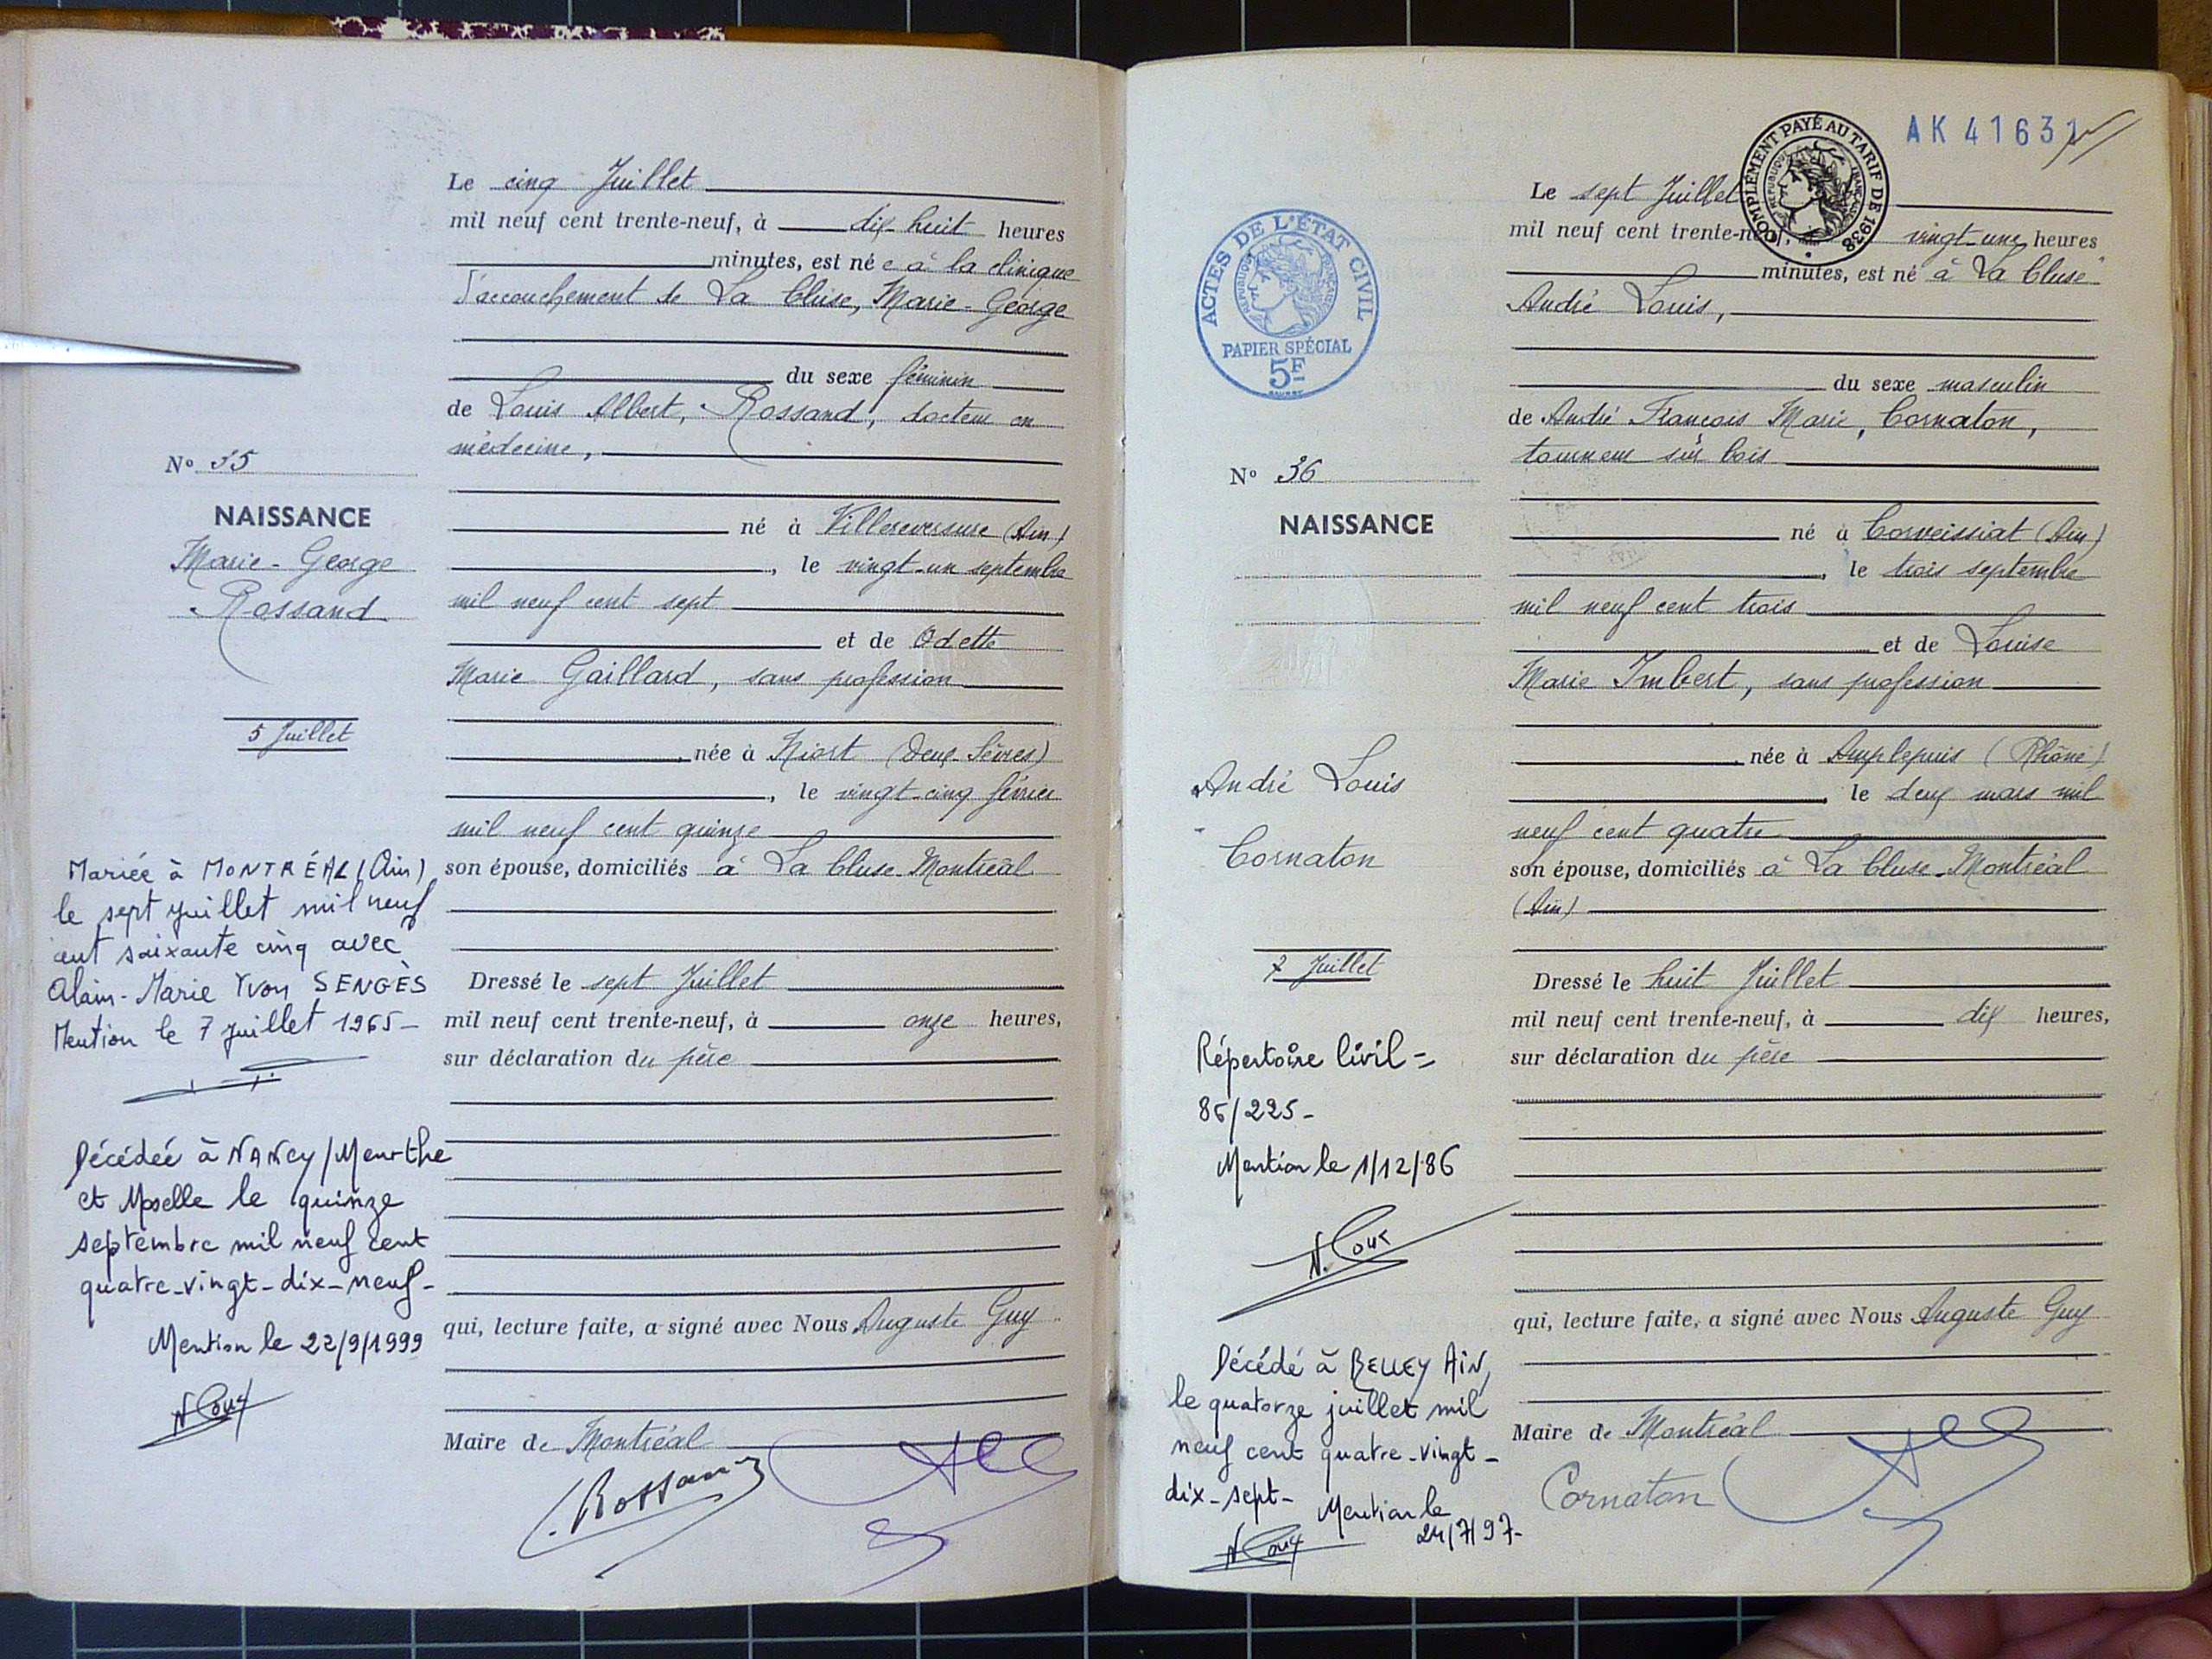 Le cinq Juillet
mil neuf cent trente-neuf, à dix-huit heures
minutes, est né e à la clinique
d'accouchement de La Cluse, Marie-George
du sexe féminin
de Louis Albert, Rossand, docteur en
médecine,
né à Villereversure (Ain)
, le vingt-un septembre
mil neuf cent sept
et de Odette
Marie Gaillard, sans profession
née à Niort (Deux-Sèvres)
, le vingt-cinq février
mil neuf cent quinze
son épouse, domiciliés à La Cluse-Montréal
Dressé le sept Juillet
mil neuf cent trente-neuf, à onze heures,
sur déclaration du père
qui, lecture faite, a signé avec Nous Auguste Guy
Maire de Montréal
Rossand
No 35
NAISSANCE
Marie-George
Rossand
5 Juillet
Mariée à MONTRÉAL (Ain)
le sept juillet mil neuf
cent soixante cinq avec
Alain-Marie Yvon SENGÈS
Mention le 7 juillet 1965-
Décédée à NANCY/Meurthe
et Moselle le quinze
septembre mil neuf cent
quatre-vingt-dix-neuf-
Mention le 22/9/1999
AK 41631
COMPLÉMENT PAYÉ AU TARIF DE 1938
RÉPUBLIQUE FRANÇAISE
ACTES DE L'ÉTAT CIVIL
RÉPUBLIQUE FRANÇAISE
PAPIER SPÉCIAL
5F
Le sept Juillet
mil neuf cent trente-neuf, vingt-une heures
minutes, est né à La Cluse
André Louis,
du sexe masculin
de André François Marie, Cornaton,
tourneur sur bois
né à Corveissiat (Ain)
, le trois septembre
mil neuf cent trois
et de Louise
Marie Imbert, sans profession
née à Amplepuis (Rhône)
, le deux mars mil
neuf cent quatre
son épouse, domiciliés à La Cluse-Montréal
(Ain)
Dressé le huit Juillet
mil neuf cent trente-neuf, à dix heures,
sur déclaration du père
qui, lecture faite, a signé avec Nous Auguste Guy
Maire de Montréal
Cornaton
No 36
NAISSANCE
André Louis
Cornaton
7 Juillet
Répertoire Civil=
86/225-
Mention le 1/12/86
Décédé à BELLEY AIN,
le quatorze juillet mil
neuf cent quatre-vingt-
dix-sept-
Mention le
24/7/97-